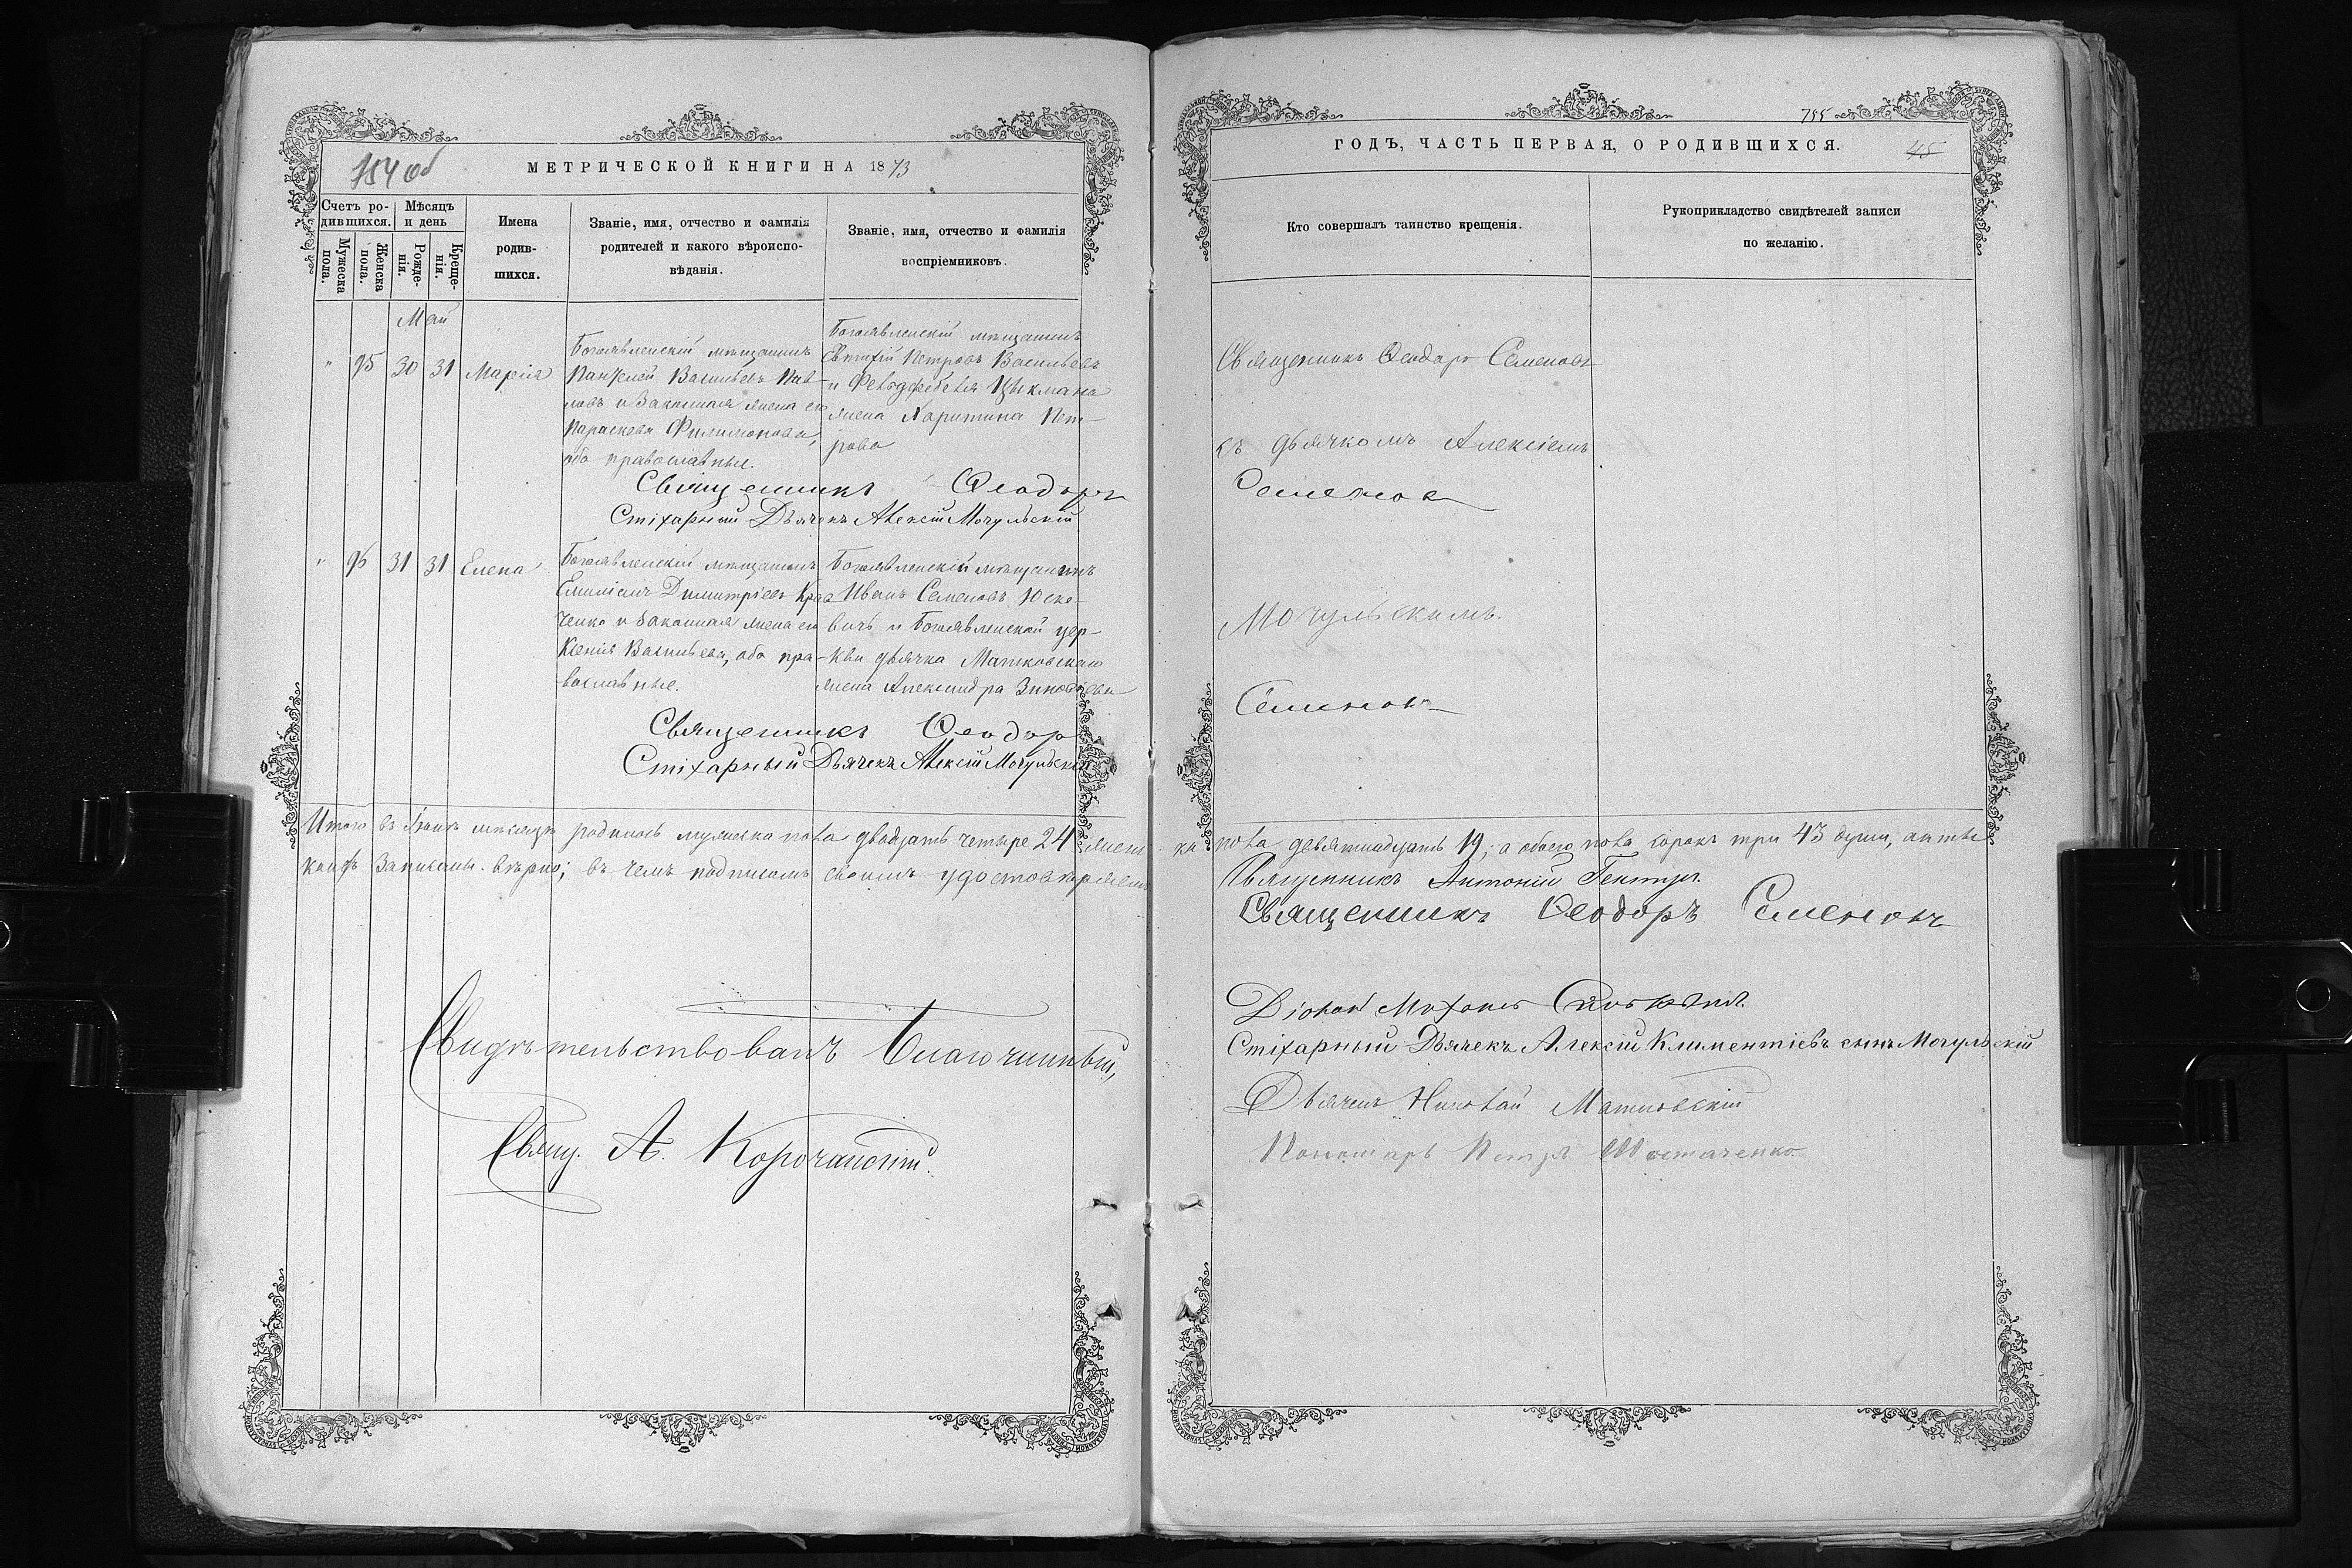 754 об
МЕТРИЧЕСКОЙ КНИГИ НА 1873
Счетъ ро-
дившихся.
Мѣсяцъ
и день
Мужеска
пола.
Женска
пола.
Рожде-
нія.
Креще-
нія.
Имена
родив-
шихся.
Званіе, имя, отчество и фамилія
родителей и какого вѣроиспо-
вѣданія.
Званіе, имя, отчество и фамилія
воспріемниковъ.
Май
" 95 30 31 Марія
Богоявленскій мѣщанинъ
Пантелей Васильевъ Пав-
ловъ и законная жена его
Параскева Филимонова,
оба православные.
Богоявленскій мѣщанинъ
Евтихій Петровъ Васильевъ
и Цыкмана
жена Харитина Пет-
рова
Священникъ Ѳеодоръ
Стихарный Дьячекъ Алексій Мочульскій
" 96 31 31 Елена
Богоявленскій мѣщанинъ
Емиліанъ Димитріевъ Крав
ченко и законная жена его
Ксенія Васильева, оба пра-
вославные.
Богоявленскій мѣщанинъ
Иванъ Семеновъ Юске-
вичъ и Богоявленской цер-
кви дьячка Матковскаго
жена Александра Зиновіева
Священникъ Ѳеодоръ
Стіхарный Дьячекъ Алексій Мочульскій
Итого въ Маѣ мѣсяцѣ родилось мужеска пола двадцать четыре 24 жен
ковъ записаны вѣрно; въ чемъ подписомъ своимъ удостовѣряемъ
Свидѣтельствовалъ Благочинный,
Свящ. А. Корочанскій.
755
ГОДЪ, ЧАСТЬ ПЕРВАЯ, О РОДИВШИХСЯ.
45
Кто совершалъ таинство крещенія.
Рукоприкладство свидѣтелей записи
по желанію.
Священникъ Ѳеодоръ Семеновъ
съ дьячкомъ Алексіемъ
Семеновъ
Мочульскимъ.
Семеновъ
ка пола девятнадцать 19; а обоего пола сорокъ три 43 души, акты
Священникъ Антоній Гентул.
Священникъ Ѳеодоръ Семеновъ
Діаконъ
Стіхарный Дьячекъ Алексій Климентіевъ сынъ Мочульскій
Дьячекъ Николай Матковскій
Пономарь Петръ Шостаченко